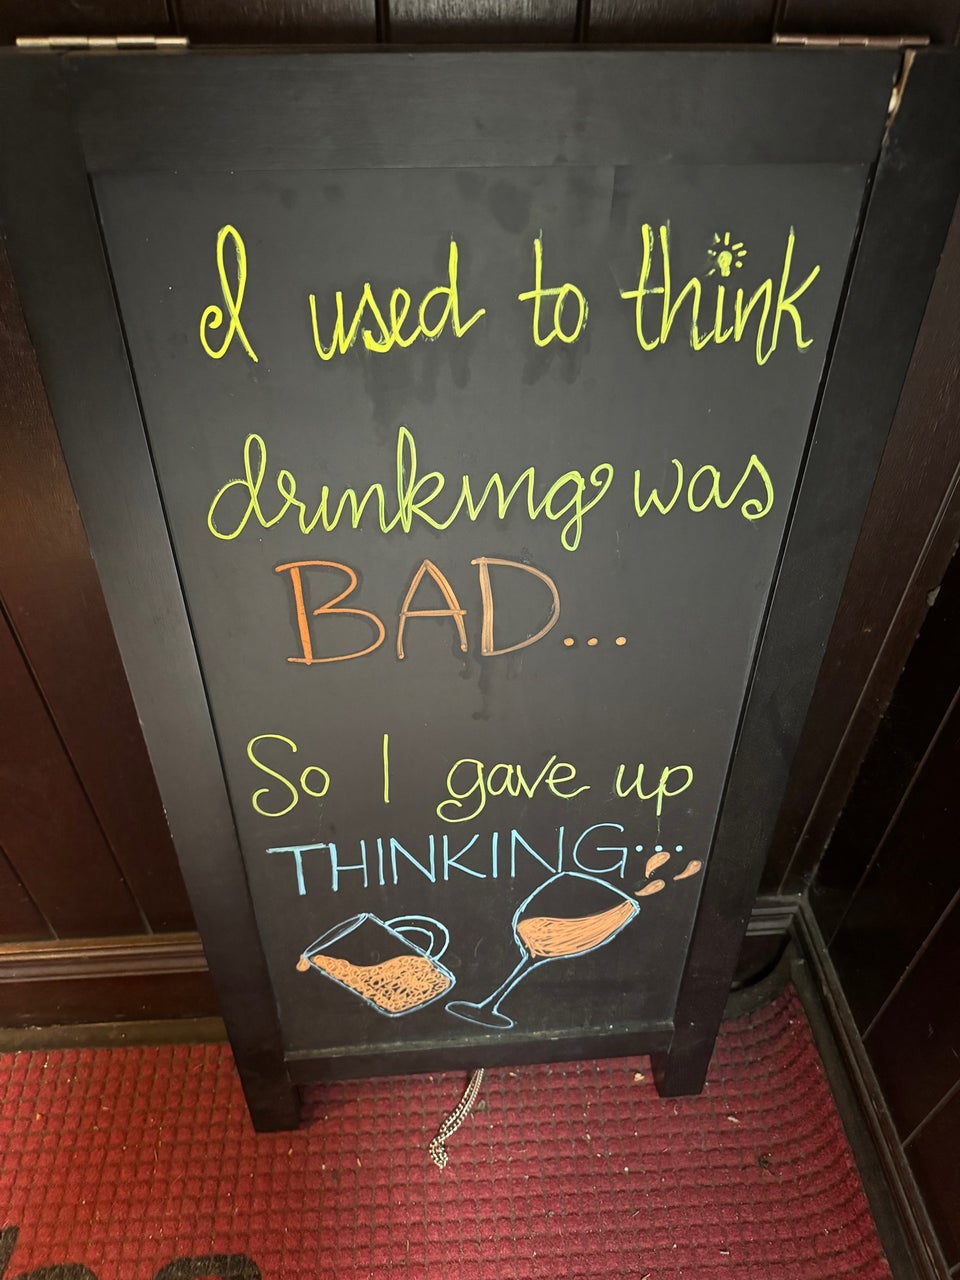 I used to think
drinking was
BAD...
So I gave up
THINKING...